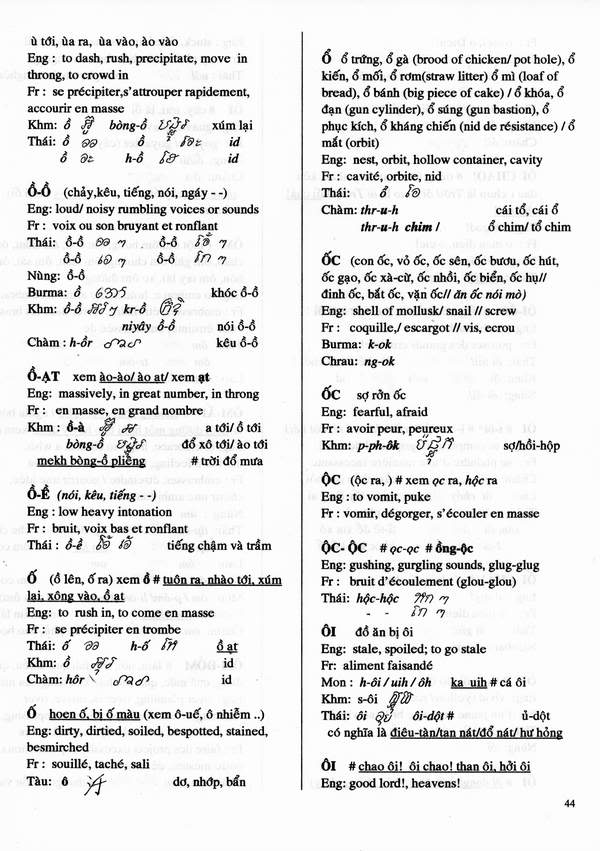 ù tới, ùa ra, ùa vào, ào vào
Eng : to dash, rush, precipitate, move in
throng, to crowd in
Fr : se précipiter,s'attrouper rapidement,
accourir en masse
Khm: ồ bòng-ồ xúm lại
Thái: ồ ồ id
ồ h-ồ id
Ồ-Ồ (chảy,kêu, tiếng, nói, ngáy - -)
Eng: loud/ noisy rumbling voices or sounds
Fr : voix ou son bruyant et ronflant
Thái: ồ-ồ
ồ-ồ
Nùng: ồ-ồ
Burma: ồ khóc ồ-ồ
Khm: ồ-ồ kr-ồ
niyây ồ-ồ nói ồ-ồ
Chàm : h-ôr kêu ồ-ồ
Ồ-ẠT xem ào-ào/ ào ạt/ xem ạt
Eng: massively, in great number, in throng
Fr : en masse, en grand nombre
Khm : ồ-à a tới/ ồ tới
bòng-ồ đổ xô tới/ ào tới
mekh bòng-ồ pliêng # trời đổ mưa
Ồ-Ề (nói, kêu, tiếng - -)
Eng : low heavy intonation
Fr : bruit, voix bas et ronflant
Thái : ồ-ề tiếng chậm và trầm
Ố (ồ lên, ố ra) xem ồ # tuôn ra, nhào tới, xúm
lại, xông vào, ồ ạt
Eng: to rush in, to come en masse
Fr : se précipiter en trombe
Thái: ố h-ố ồ ạt
Khm: ồ id
Chàm: hôr id
Ố hoen ố, bị ố màu (xem ô-uế, ô nhiễm ..)
Eng: dirty, dirtied, soiled, bespotted, stained,
besmirched
Fr : souillé, taché, sali
Tàu: ô dơ, nhớp, bẩn
Ổ ổ trứng, ổ gà (brood of chicken/ pot hole), ổ
kiến, ổ mối, ổ rơm(straw litter) ổ mì (loaf of
bread), ổ bánh (big piece of cake) / ổ khóa, ổ
đạn (gun cylinder), ổ súng (gun bastion), ổ
phục kích, ổ kháng chiến (nid de résistance) / ổ
mắt (orbit)
Eng: nest, orbit, hollow container, cavity
Fr : cavité, orbite, nid
Thái: ổ
Chàm: thr-u-h cái tổ, cái ổ
thr-u-h chim / ổ chim/ tổ chim
ỐC (con ốc, vỏ ốc, ốc sên, ốc bươu, ốc hút,
ốc gạo, ốc xà-cừ, ốc nhồi, ốc biển, ốc hụ//
đinh ốc, bắt ốc, vặn ốc// ăn ốc nói mò)
Eng: shell of mollusk/ snail // screw
Fr : coquille,/ escargot // vis, ecrou
Burma: k-ok
Chrau: ng-ok
ỐC sợ rởn ốc
Eng: fearful, afraid
Fr : avoir peur, peureux
Khm: p-ph-ôk sợ/hồi-hộp
ỘC (ộc ra, ) # xem ọc ra, hộc ra
Eng : to vomit, puke
Fr : vomir, dégorger, s'écouler en masse
ỘC- ỘC # ọc-ọc # ồng-ộc
Eng: gushing, gurgling sounds, glug-glug
Fr : bruit d'écoulement (glou-glou)
Thái: hộc-hộc
- -
ÔI đồ ăn bị ôi
Eng: stale, spoiled; to go stale
Fr: aliment faisandé
Mon : h-ôi / uih / ôh ka uih # cá ôi
Khm: s-ôi
Thái: ôi ôi-dột # ủ-dột
có nghĩa là điêu-tàn/tan nát/đổ nát/ hư hỏng
ÔI # chao ôi! ôi chao! than ôi, hỡi ôi
Eng: good lord!, heavens!
44